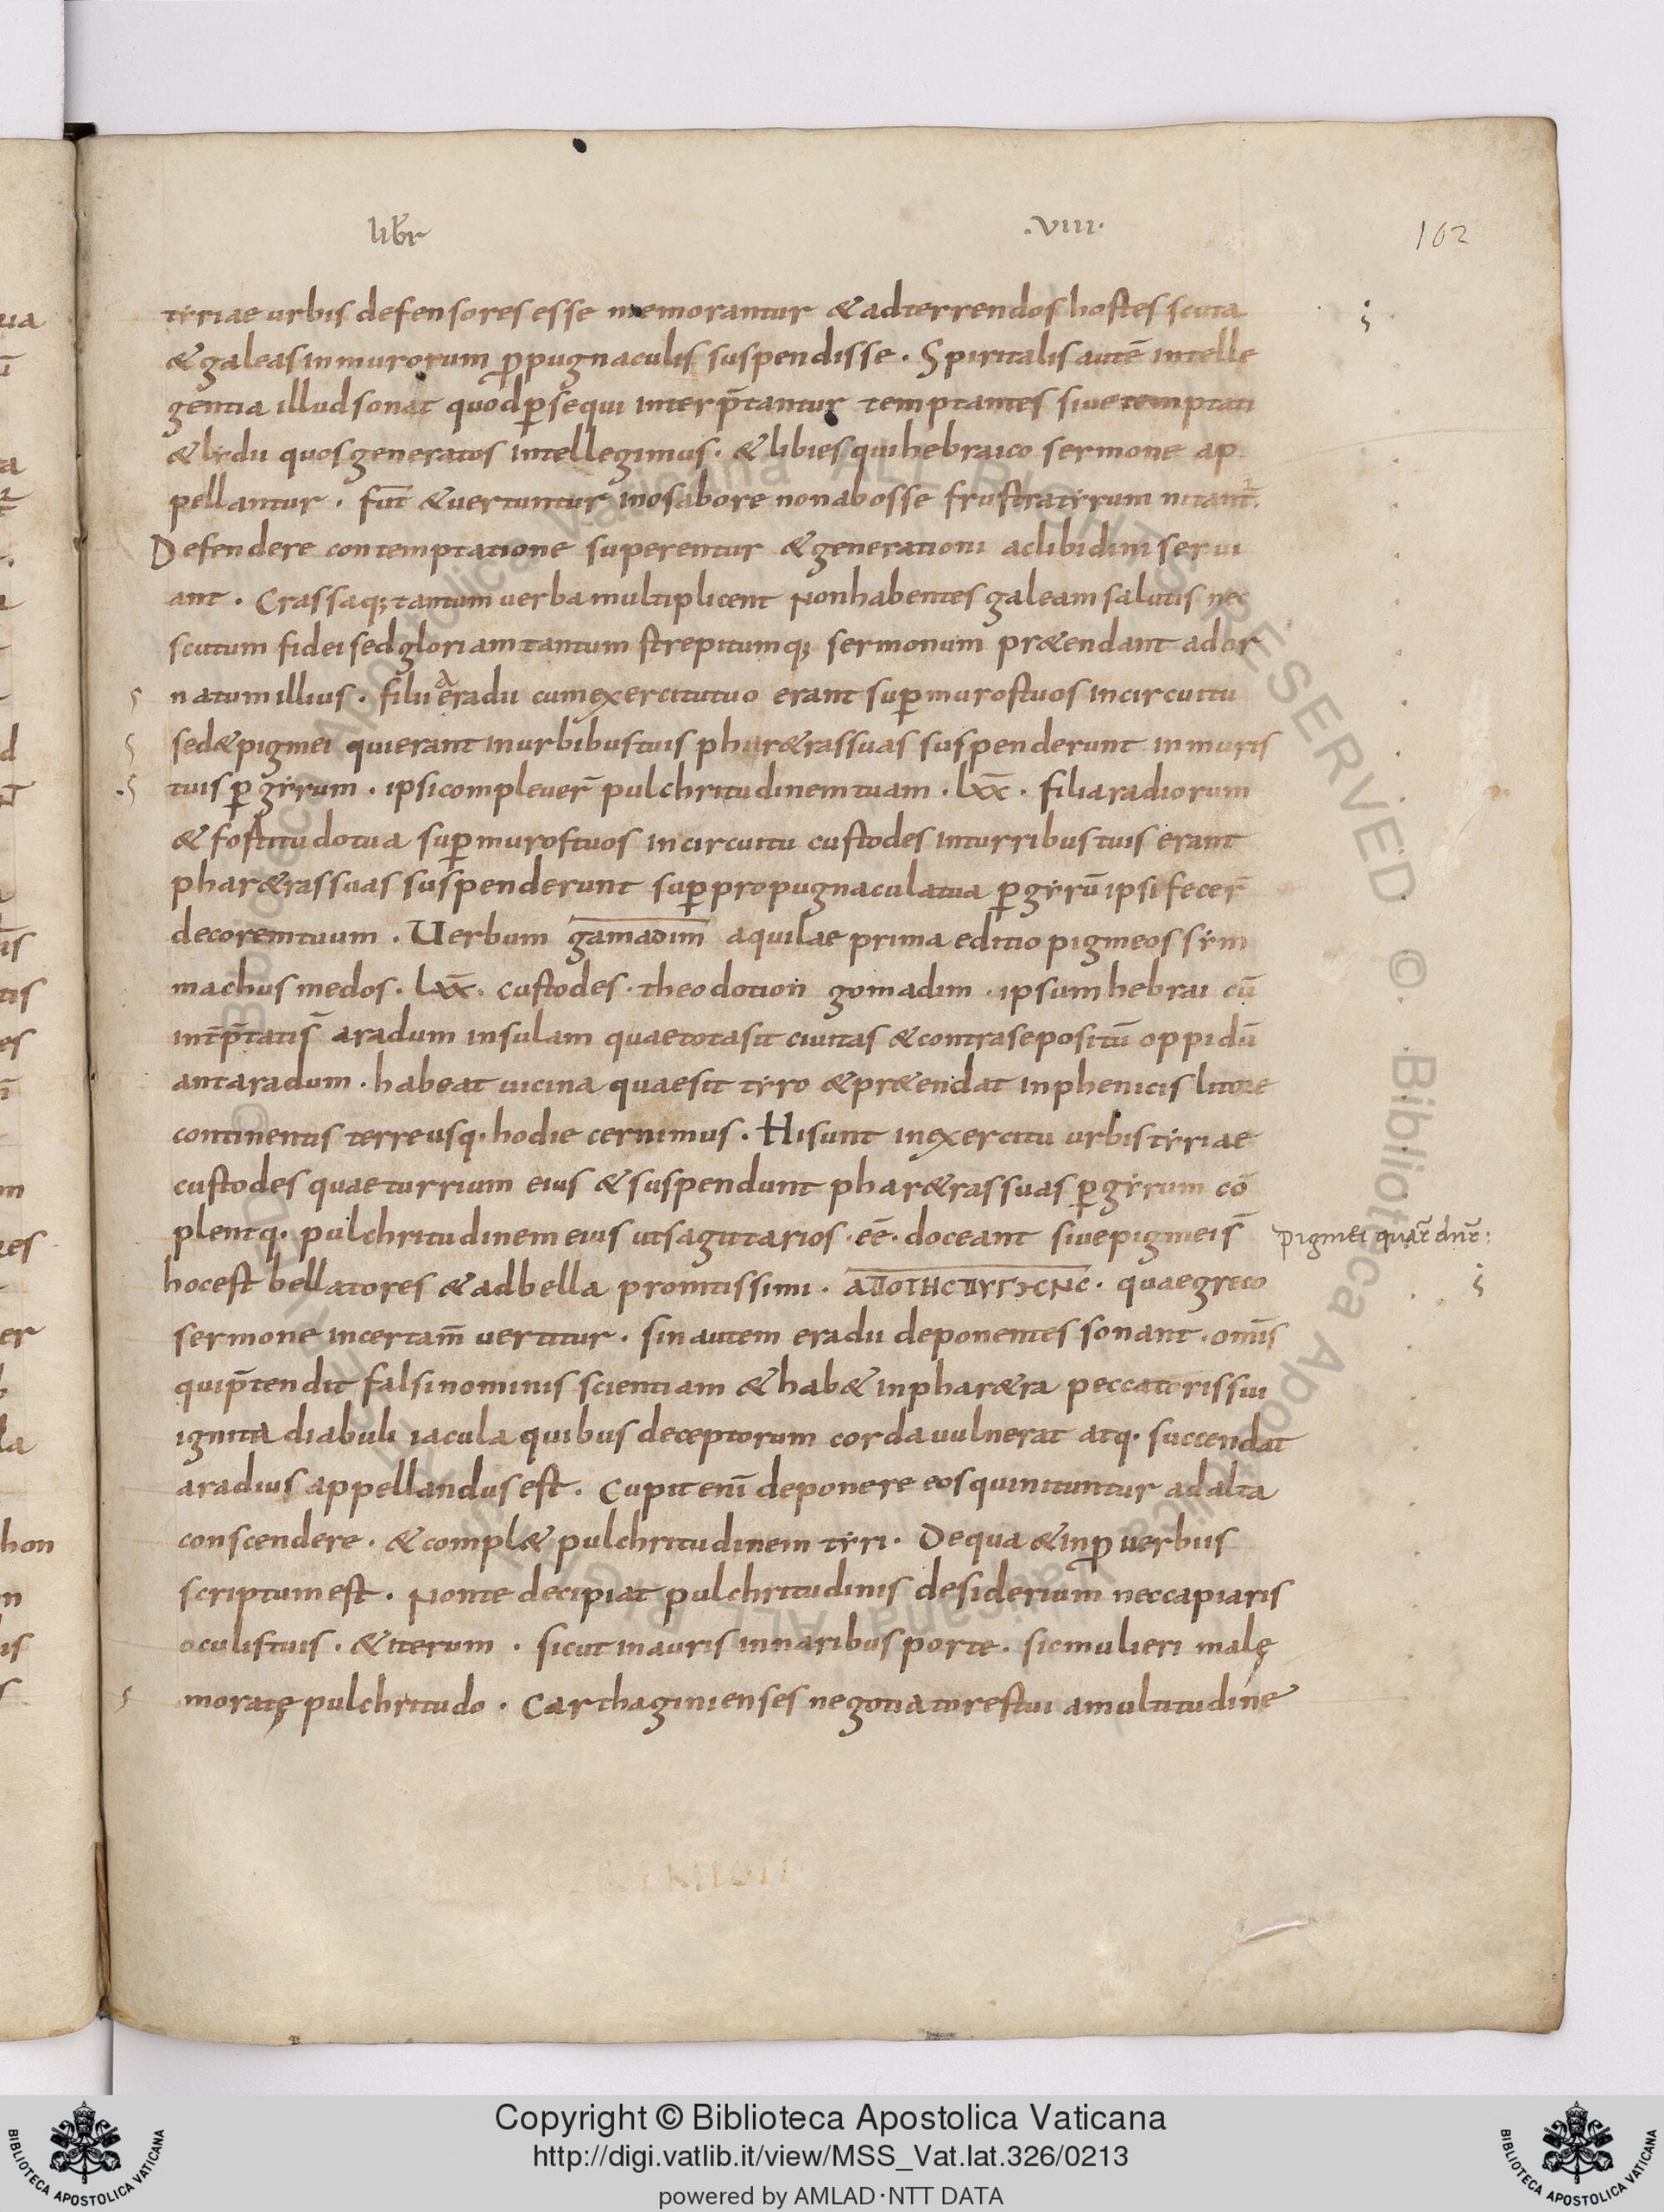 libr .VIII. 102
tẏriae urbis defensores esse memorantur & ad terrendos hostes scuta
& galeas in murorum ꝓpugnaculis suspendisse . Spiritalis autē intelle
gentia illud sonat quod ꝑsequi interp̄tantur temptantes siue temptati
& lẏdii quos generatos intellegimus . & libies qui hebraico sermone ap
pellantur . fut̄ & uertuntur in os ab ore non ab osse frustra tẏrum nitant̄.
Defendere cont emptatione superentur & generationi ac libidini serui
ant . Crassaq; tantum uerba multiplicent Non habentes galeam salutis nec
scutum fidei sed gloriam tantum strepitumq; sermonum pr&endant ad or
natum illius . filii aeradii cum exercitu tuo erant suꝑ muros tuos in circuitu
sed & pigmei qui erant in urbibus tuis phar&ras suas suspenderunt in muris
tuis ꝑ gẏrum . ipsi compleuer̄ pulchritudinem tuam . lxx̄ . filii aradiorum
& fostitudo tua suꝑ muros tuos in circuitu custodes in turribus tuis erant
phar&ras suas suspenderunt suꝑ propugnacula tua ꝑ gẏrū ipsi fecer̄
decorem tuum . Uerbum gamadim aquilae prima editio pigmeos sẏm
machus medos . lxx̄ . custodes . theodotion gomadim . ipsum hebrai cū
int̄p̄tatis̄ aradum insulam quae tota sit ciuitas & contra se positū oppidū
antaradum . habeat uicina quae sit tẏro & pr&endat in phenicis litore
continentis terre usq. hodie cernimus . Hi sunt in exercitu urbis tẏriae
custodes quae turrium eius & suspendunt phar&ras suas ꝑ gẏrum cō
plentq. pulchritudinem eius ut sagittarios . eē . doceant siue pigmeis̄
pigmei quar̄ dnt̄:
hoc est bellatores & ad bella promtissimi . ΑΠΟΤΗC ΠΥΓΜCΝC . quae greco
sermone in certam̄ uertitur . sin autem eradii deponentes sonant . omīs
qui p̄tendit falsi nominis scientiam & hab& in phar&ra peccatoris sui
ignita diabuli iacula quibus deceptorum corda uulnerat atq. succendat
aradius appellandus est . Cupit enī deponere eos qui nituntur ad alta
conscendere . & compl& pulchritudinem tẏri . De qua & in ꝓuerbiis
scriptum est . Non te decipiat pulchritudinis desiderium nec capiaris
oculis tuis . & iterum . sicut in auris in naribus porte . sic mulieri malę
moratę pulchritudo . Carthaginienses negotiatores tui a multitudine
Copyright © Biblioteca Apostolica Vaticana
http://digi.vatlib.it/view/MSS_Vat.lat.326/0213
powered by AMLAD·NTT DATA
BIBLIOTECA APOSTOLICA VATICANA
BIBLIOTECA APOSTOLICA VATICANA